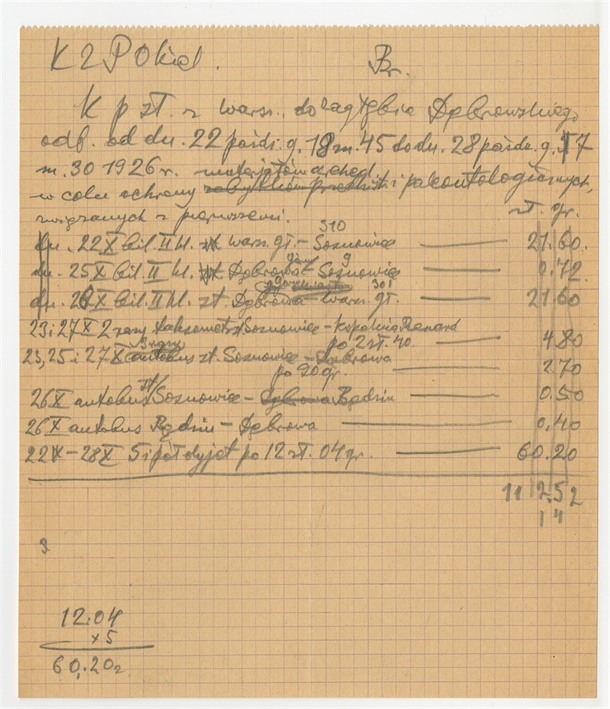 K 2 Pokid. Br.
K p zł. z Warsz., do Zagłębia Dąbrowskiego
odb. od dn. 22 paźdz. g. 18 m. 45 do dn. 28 paźdz. g. 17
m. 30 1926 r. materjałów archeol.
w celu ochrony i paleontologicznych,
związanych z pierwszemi. zł. gr.
310
dn. 22 X bil. II kl. Warsz. gł. – Sosnowiec 21.60.
9
dn. 25 X bil. II kl. Dąbrowa – Sosnowiec 0.72
301
dn. 28 X bil. II kl. zł. Dąbrowa – Warsz. gł. 21.60
23 i 27 X 2 razy taksometr Sosnowiec – Kopalnia Renard
po 2 zł. 40 4.80
3 razy
23, 25 i 27 X autobus zł. Sosnowiec – Dąbrowa
po 90 gr. 2.70
26 X autobus Sosnowiec – Dąbrowa Będzin 0.50
26 X autobus Będzin – Dąbrowa 0.40
22 X – 28 X 5 i pół dyjet po 12 zł. 04 gr. 60.20
112.52
14
9
12.04
×5
60.20